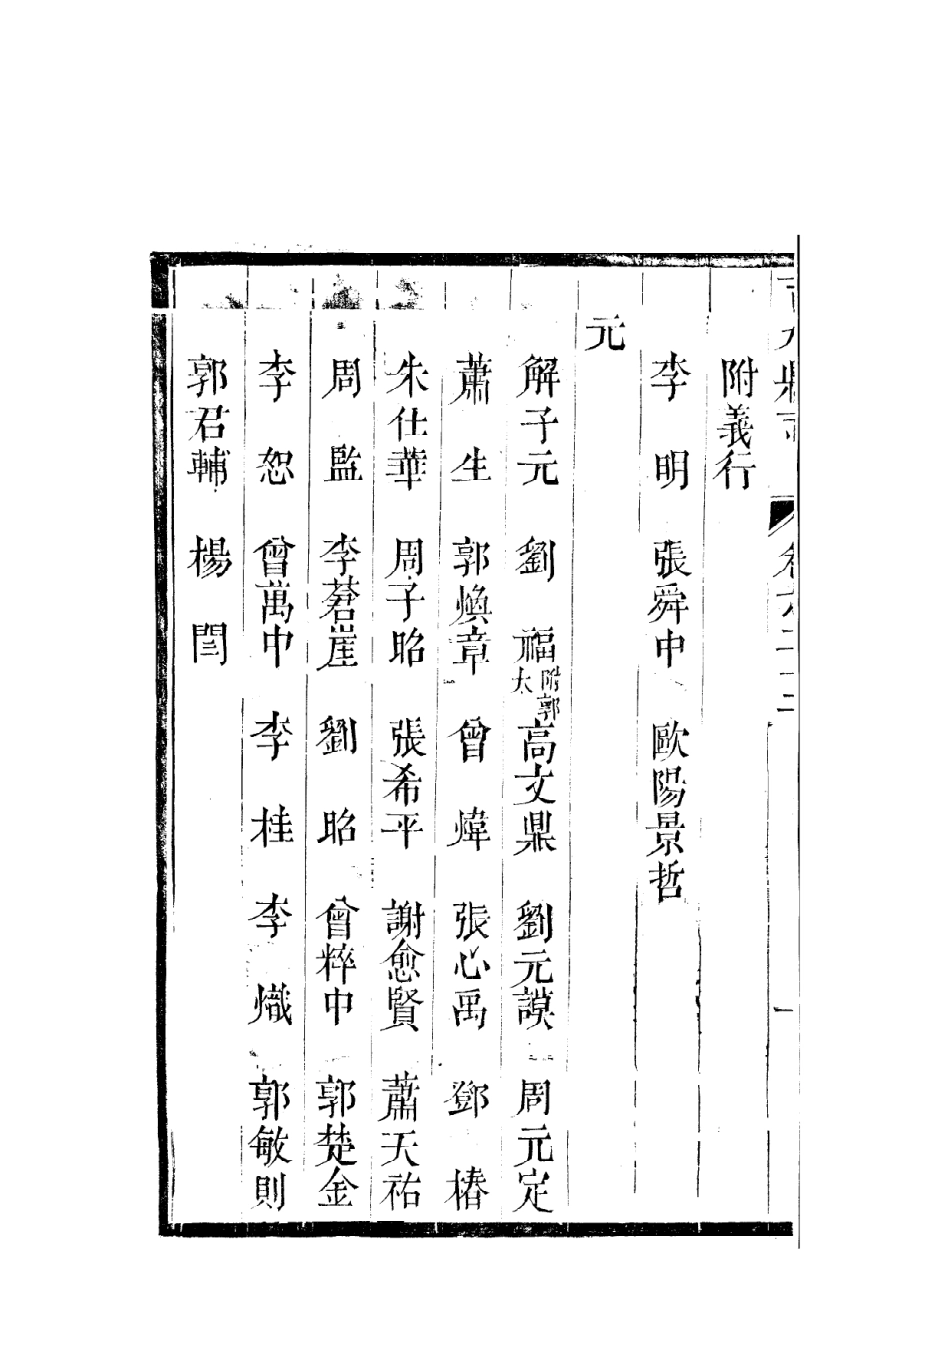 附義行
李明 張舜中 歐陽景哲
元
解子元 劉福附郭大 高文鼎 劉元謨 周元定
蕭生 郭煥章 曾煒 張心禹 鄧椿
朱仕華 周子昭 張希平 謝愈賢 蕭天祐
周監 李蒼崖 劉昭 曾粹中 郭楚金
李恕 曾萬中 李桂 李熾 郭敏則
郭君輔 楊閏